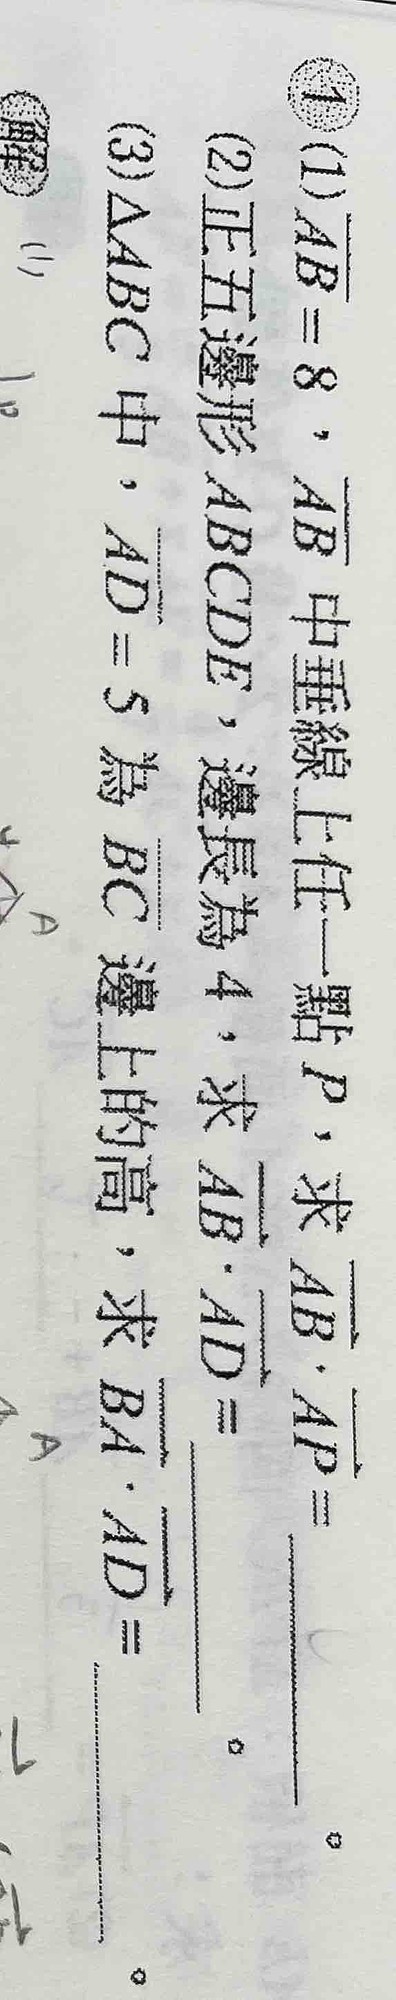 1 (1) $\overline{AB}$ = 8，$\overline{AB}$ 中垂線上任一點 P，求 $\overrightarrow{AB}$．$\overrightarrow{AP}$ = ______。
(2) 正五邊形 ABCDE，邊長為 4，求 $\overrightarrow{AB}$．$\overrightarrow{AD}$ = ______。
(3) △ABC 中，$\overline{AD}$ = 5 為 $\overline{BC}$ 邊上的高，求 $\overrightarrow{BA}$．$\overrightarrow{AD}$ = ______。
解 (1)
A
A